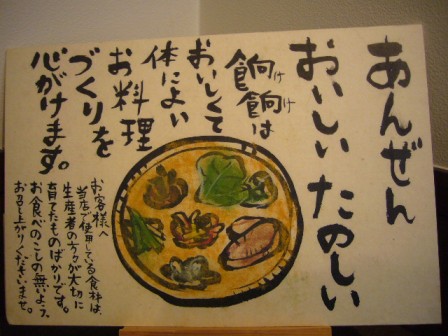 あんぜん
おいしい たのしい
餉餉は
けけ
おいしくて
体によい
お料理
づくりを
心がけます。
お客様へ
当店で使用している食材は、
生産者の方々が大切に
育てたものばかりです。
お食べのこしの無いよう、
お召し上がりくださいませ。